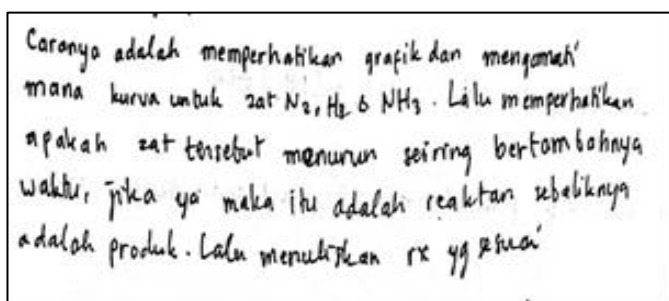 Caranya adalah memperhatikan grafik dan mengamati
mana kurva untuk zat N₂, H₂ & NH₃. Lalu memperhatikan
apakah zat tersebut menurun seiring bertambahnya
waktu, jika ya maka itu adalah reaktan sebaliknya
adalah produk. Lalu menuliskan rx yg sesuai